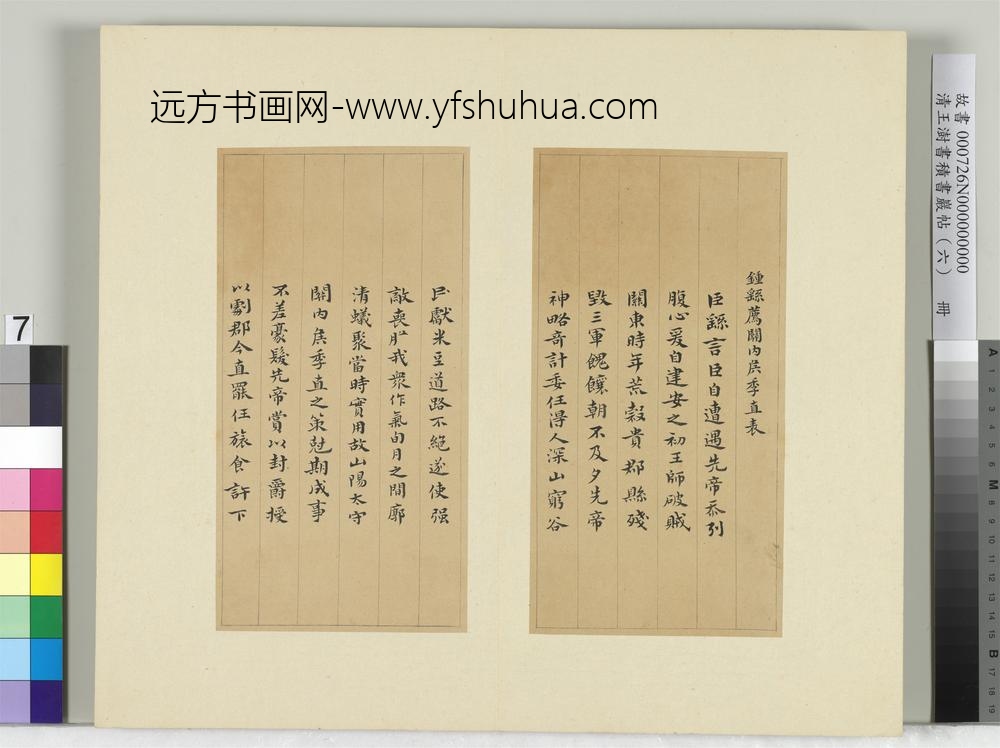 远方书画网-www.yfshuhua.com
故書 000726N000000000
清王澍書積書巖帖（六） 冊
鍾繇薦關內侯季直表
臣繇言臣自遭遇先帝忝列
腹心爰自建安之初王師破賊
關東時年荒穀貴郡縣殘
毀三軍餽饟朝不及夕先帝
神略奇計委任得人深山窮谷
民獻米豆道路不絕遂使强
敵喪膽我衆作氣旬月之間廓
清蟻聚當時實用故山陽太守
關內侯季直之策尅期成事
不差豪髮先帝賞以封爵授
以劇郡今直罷任旅食許下
7
A 1 2 3 4 5 6 M 8 9 10 11 12 13 14 15 B 17 18 19